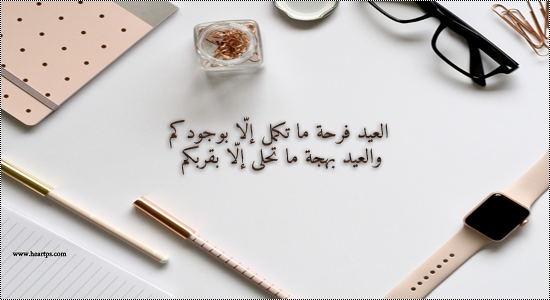 العيد فرحة ما تكمل إلّا بوجودكم
والعيد بهجة ما تحلى إلّا بقربكم
www.heartps.com